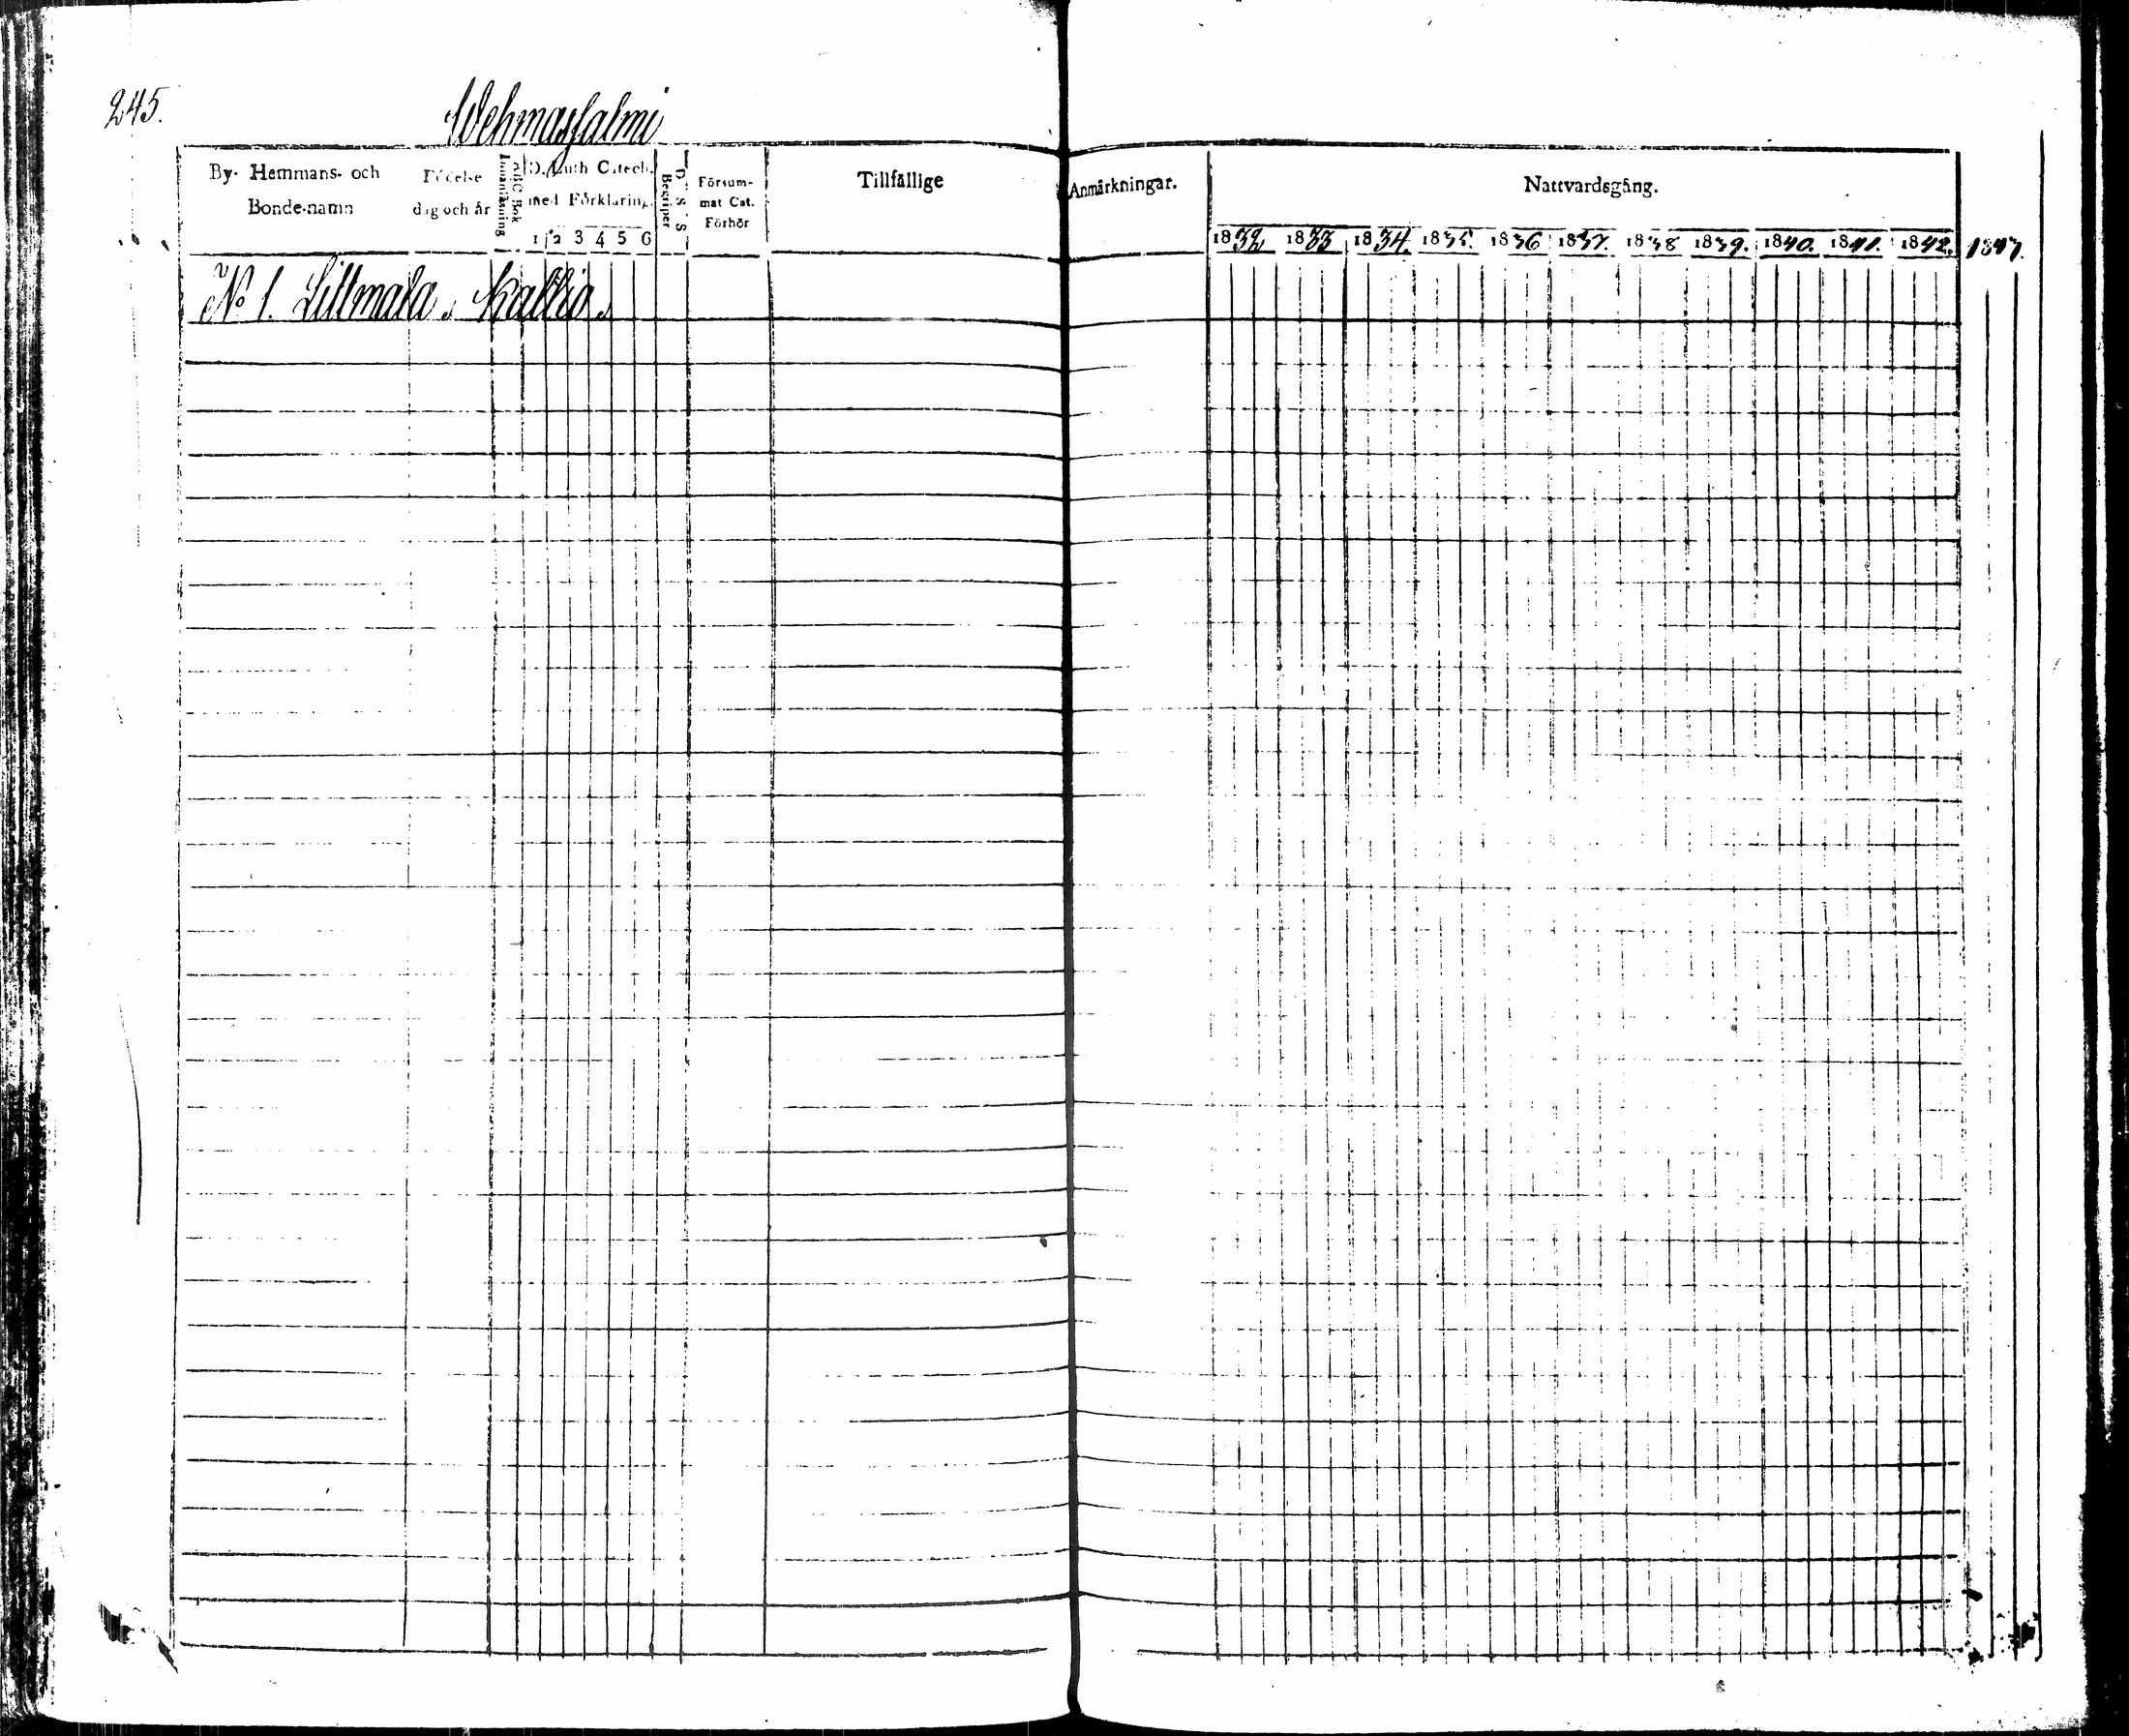 245.
Wehmasjalmi
By- Hemmans- och
Bonde-namn
Födelse
dag och år
Innanläsning
ABC Bok
D. Luth Catech.
med Förklaring.
1 2 3 4 5 6
Begriper
D. S. S.
Försum-
mat Cat.
Förhör
Tillfällige
Anmärkningar.
Nattvardsgång.
1832 1833 1834. 1835. 1836 1837. 1838 1839. 1840. 1841. 1842. 1843.
No 1. Litlmala, Kallio,